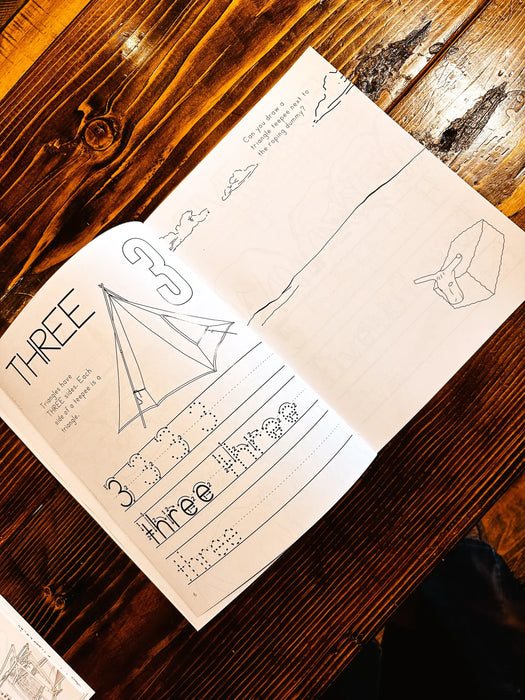 THREE
3
Triangles have
THREE sides. Each
side of a teepee is a
triangle.
3 3 3 3
three three
three
Can you draw a
triangle teepee next to
the roping dummy?